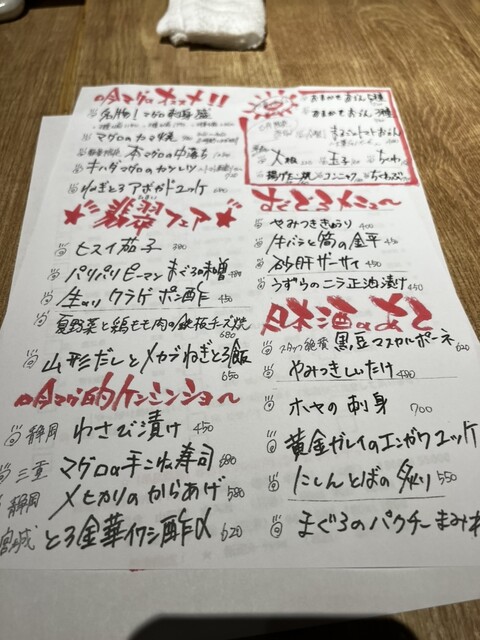 吟マグロオススメ!!
名物!マグロ刺身盛
マグロのカマ焼
本マグロの中落ち
キハダマグロのカツレツ
ねぎとろアボカドユッケ
発酵フェス
ヒスイ茄子 380
パリパリピーマン まぐろ味噌 480
生のり クラゲポン酢 450
夏野菜と鶏もも肉の鉄板チーズ焼 680
山形だしとメカブねぎとろ飯 650
吟マグ的ケンミンショー
静岡 わさび漬け 450
三重 マグロの手こね寿司 680
静岡 メヒカリのからあげ 580
宮城 とろ金華イワシ酢〆 620
おまかせおでん
おまかせおでん
まるごとトマトおでん
大根
玉子
ちくわ
コンニャク
すぐでるメニュー
やみつききゅうり 400
牛バラと筍の金平
砂肝ザーサイ 450
うずらのニラ正油漬け 450
日本酒のあて
スタッフ絶賛 黒豆マスカルポーネ 620
やみつきしいたけ 480
ホヤの刺身 700
黄金ガレイのエンガワユッケ
にしんとばの炙り 550
まぐろのパクチーまみれ